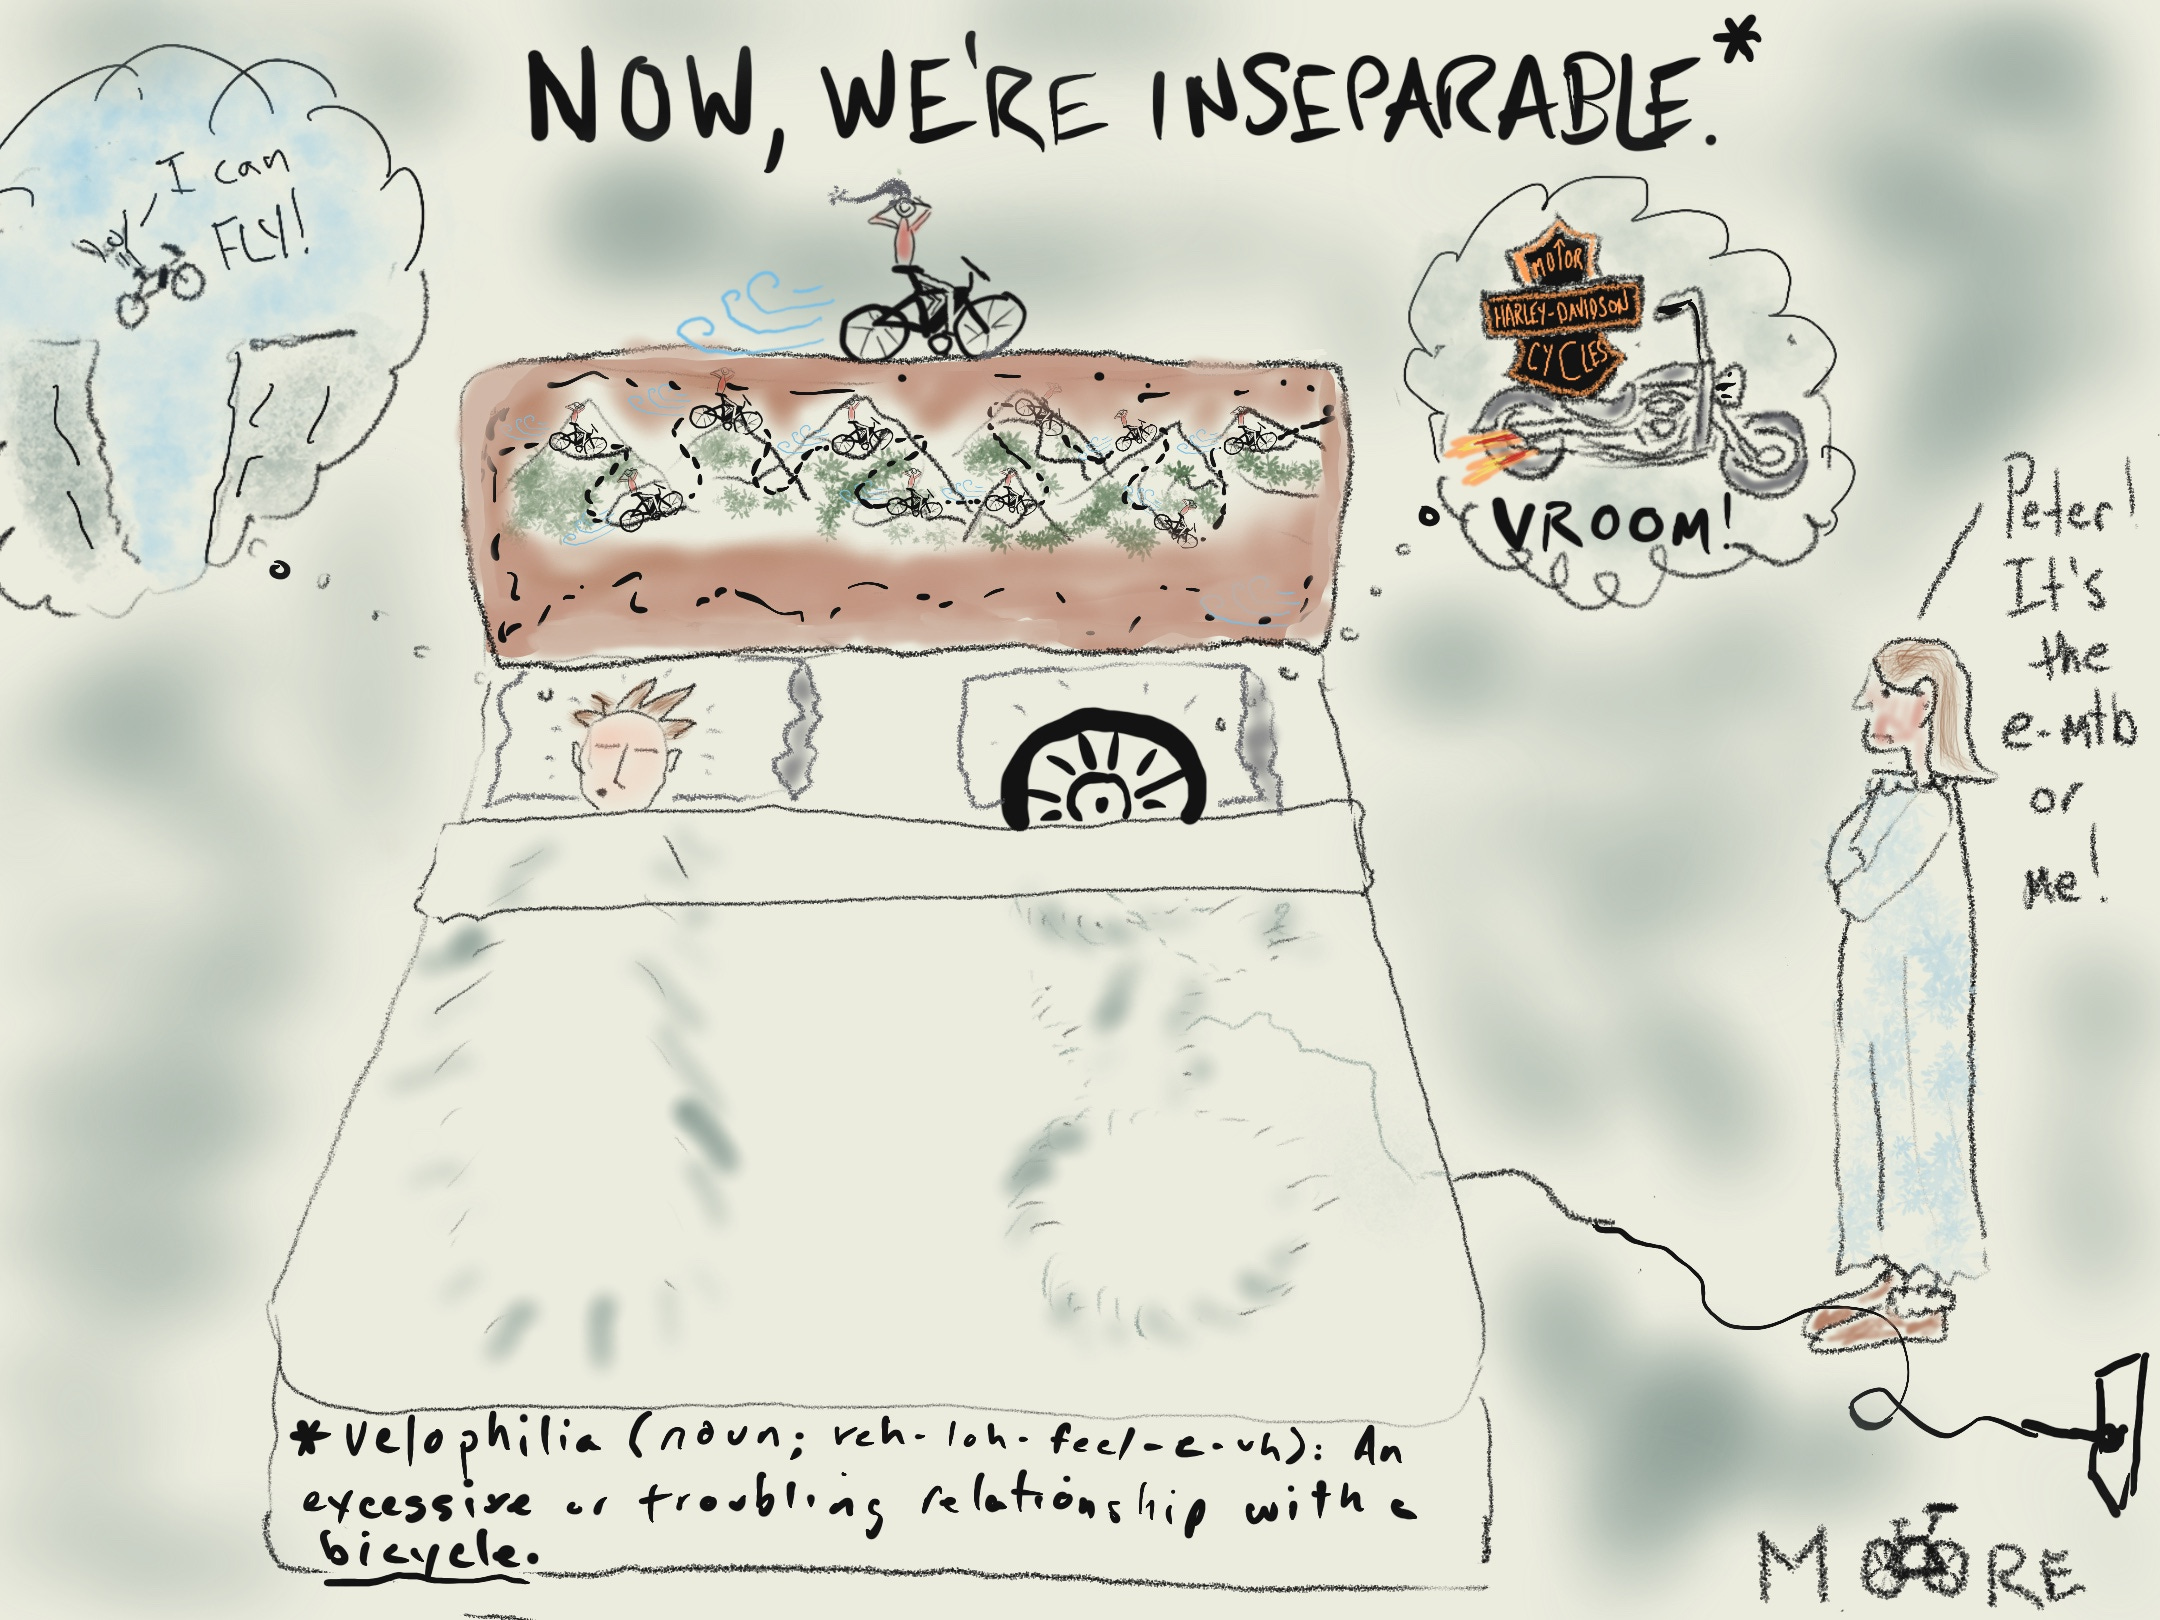 NOW, WE'RE INSEPARABLE.*
I can
FLY!
MOTOR
HARLEY-DAVIDSON
CYCLES
VROOM!
Peter!
It's
the
e-mtb
or
me!
*Velophilia (noun; veh-loh-feel-e-uh): An
excessive or troubling relationship with a
bicycle.
MOORE